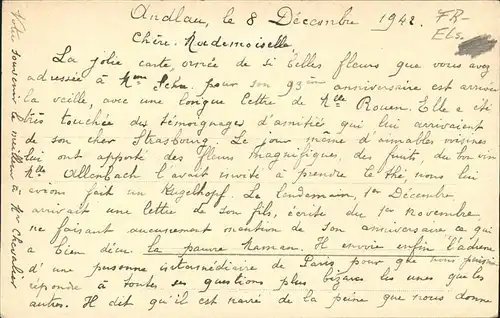 Andlau, le 8 Décembre 1942.
FR-
Els.
Chère Mademoiselle
La jolie carte, ornée de si belles fleurs que vous avez
adressée à Mme pour son 93ème anniversaire est arrivée
la veille, avec une longue lettre de Mlle Rouen. Elle a été
très touchée des témoignages d'amitié qui lui arrivaient
de son cher Strasbourg. Le jour même d'aimables voisines
lui ont apporté des fleurs magnifiques, des fruits, du bon vin
Mlle Allenbach l'avait invité à prendre le thé nous lui
avions fait un Kugelhopf. Le lendemain, 1er Décembre
arrivait une lettre de son fils, écrite du 1er Novembre,
ne faisant aucunement mention de son anniversaire ce qui
a bien déçu la pauvre Maman. Il envoie enfin l'adresse
d'une personne intermédiaire de Paris pour que nous puissions
répondre à toutes ses questions plus bizarres les unes que les
autres. Il dit qu'il est navré de la peine que nous donne
Votre souvenir le meilleur à Mr Chevalier